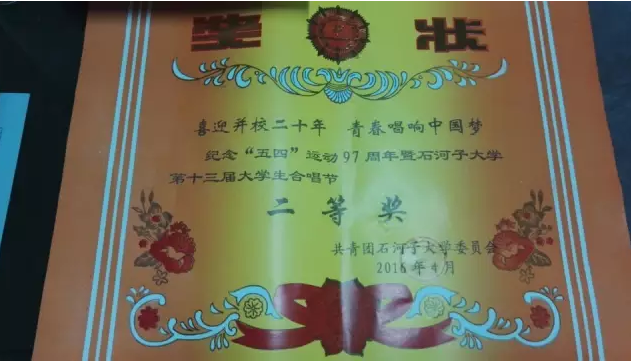 奖 状
喜迎并校二十年 青春唱响中国梦
纪念“五四”运动97周年暨石河子大学
第十三届大学生合唱节
二等奖
共青团石河子大学委员会
2016年4月